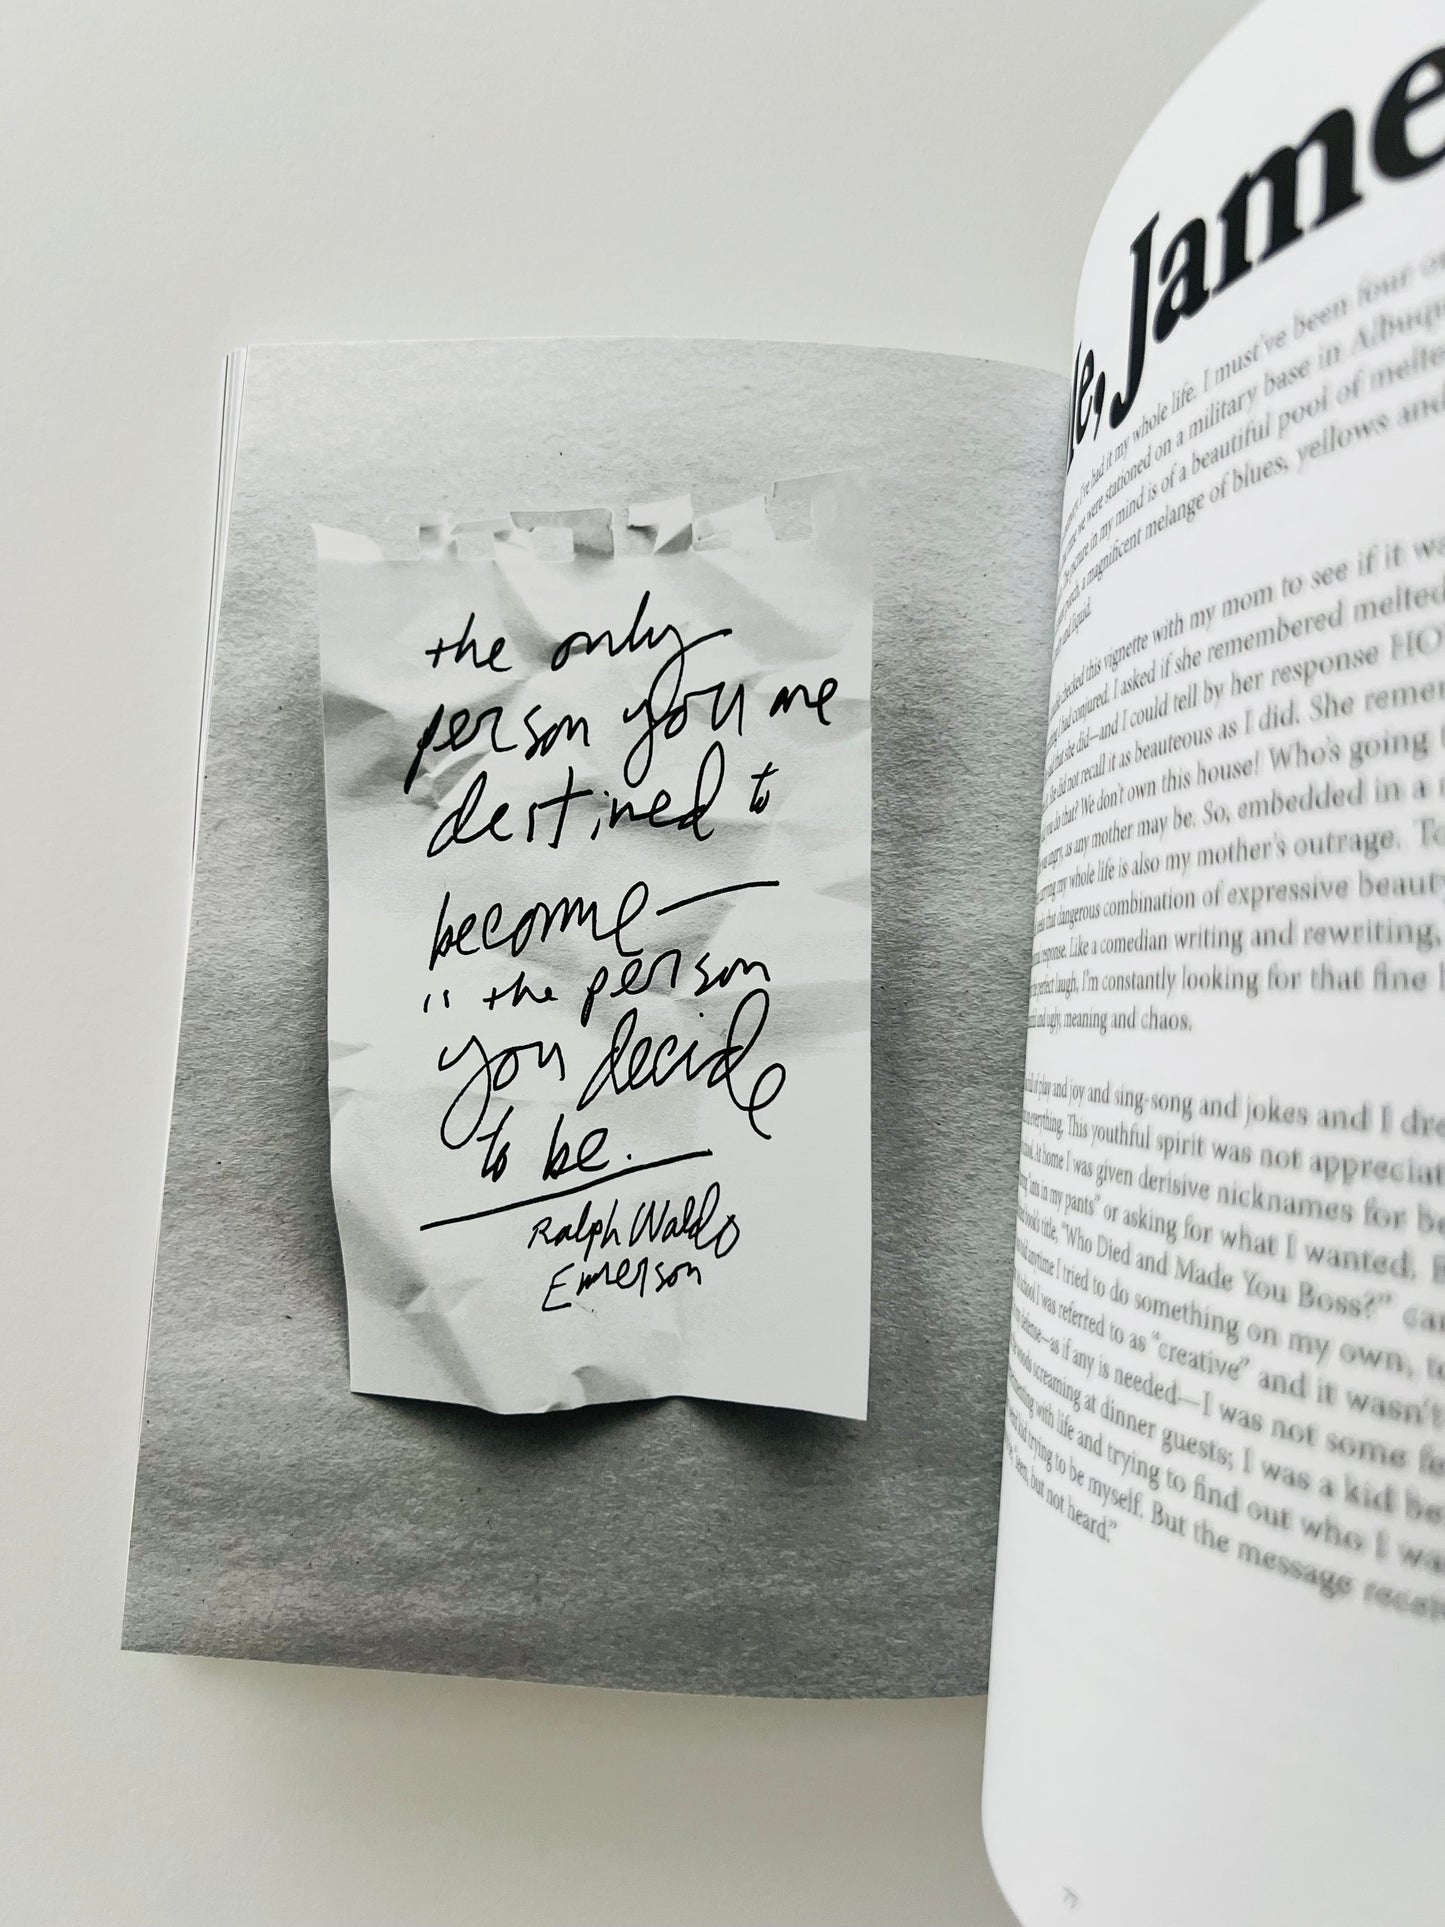 the only
person you are
destined to
become —
is the person
you decide
to be.
Ralph Waldo
Emerson
, Jame
I've had it my whole life. I must've been four
we were stationed on a military base in
picture in my mind is of a beautiful pool of
a magnificent melange of blues, yellows and
and liquid.
checked this vignette with my mom to see if it
I had conjured. I asked if she remembered melted
that she did—and I could tell by her response
She did not recall it as beauteous as I did. She
you do that? We don't own this house! Who's going
angry, as any mother may be. So, embedded in a
carrying my whole life is also my mother's outrage.
that dangerous combination of expressive
response. Like a comedian writing and rewriting,
perfect laugh, I'm constantly looking for that fine
and ugly, meaning and chaos.
of play and joy and sing-song and jokes and I
everything. This youthful spirit was not
At home I was given derisive nicknames for
in my pants” or asking for what I wanted.
book's title, “Who Died and Made You Boss?”
anytime I tried to do something on my own,
school I was referred to as “creative” and it wasn't
defense—as if any is needed—I was not some
woods screaming at dinner guests; I was a kid
with life and trying to find out who I
kid trying to be myself. But the message
seen, but not heard.”